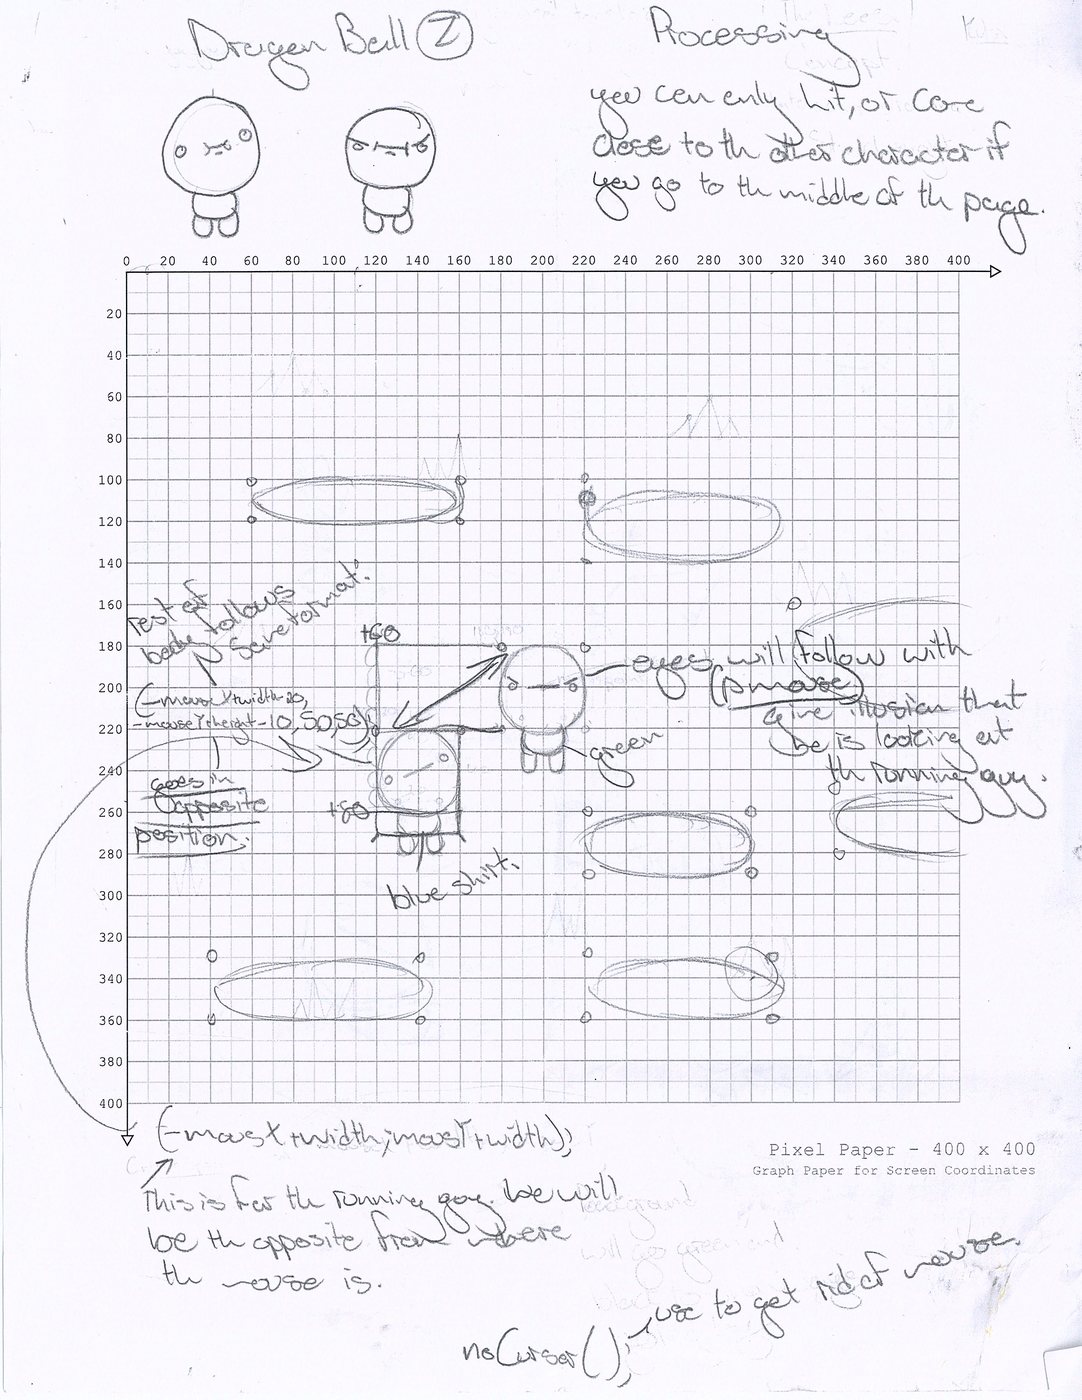 Dragon Ball Z
Processing
you can only hit, or come
close to th other character if
you go to th middle of th page.
0 20 40 60 80 100 120 140 160 180 200 220 240 260 280 300 320 340 360 380 400
20
40
60
80
100
120
140
160
180
200
220
240
260
280
300
320
340
360
380
400
Test of
body follows
same format.
+60
(-mouseX+width-20,
-mouseY+height-10,50,50);
goes in
opposite
position.
+50
blue shirt.
eyes will follow with
(pmouse)
give illusion that
he is looking at
th running guy.
green
(-mousX+width,-mousY+width);
Pixel Paper - 400 x 400
Graph Paper for Screen Coordinates
This is for th running guy. he will
be th opposite from where
th mouse is.
noCursor();
use to get rid of mouse.